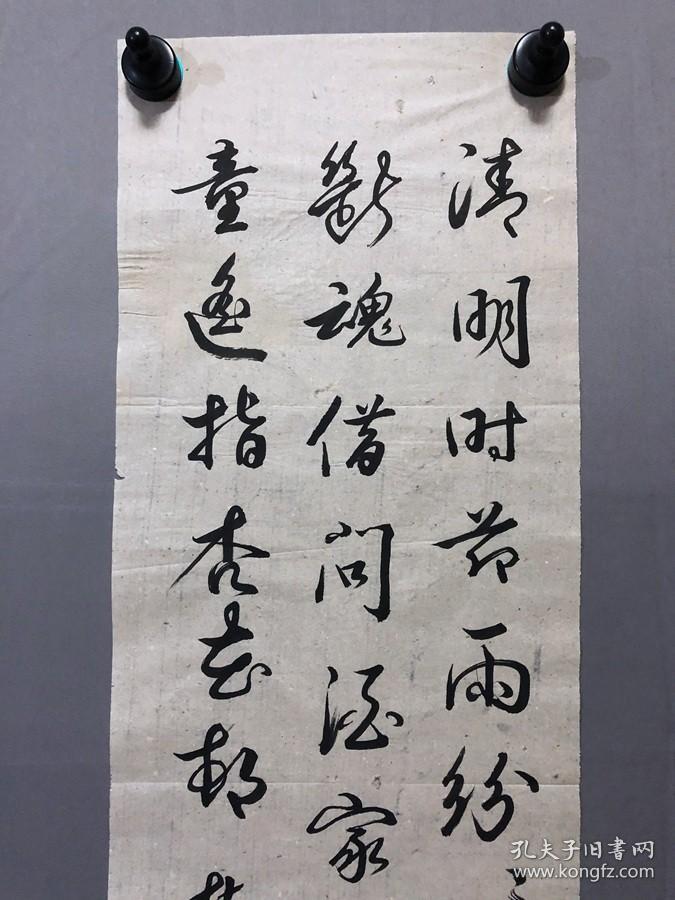 清明时节雨纷
断魂借问酒家
童遥指杏花村
孔夫子旧书网
www.kongfz.com